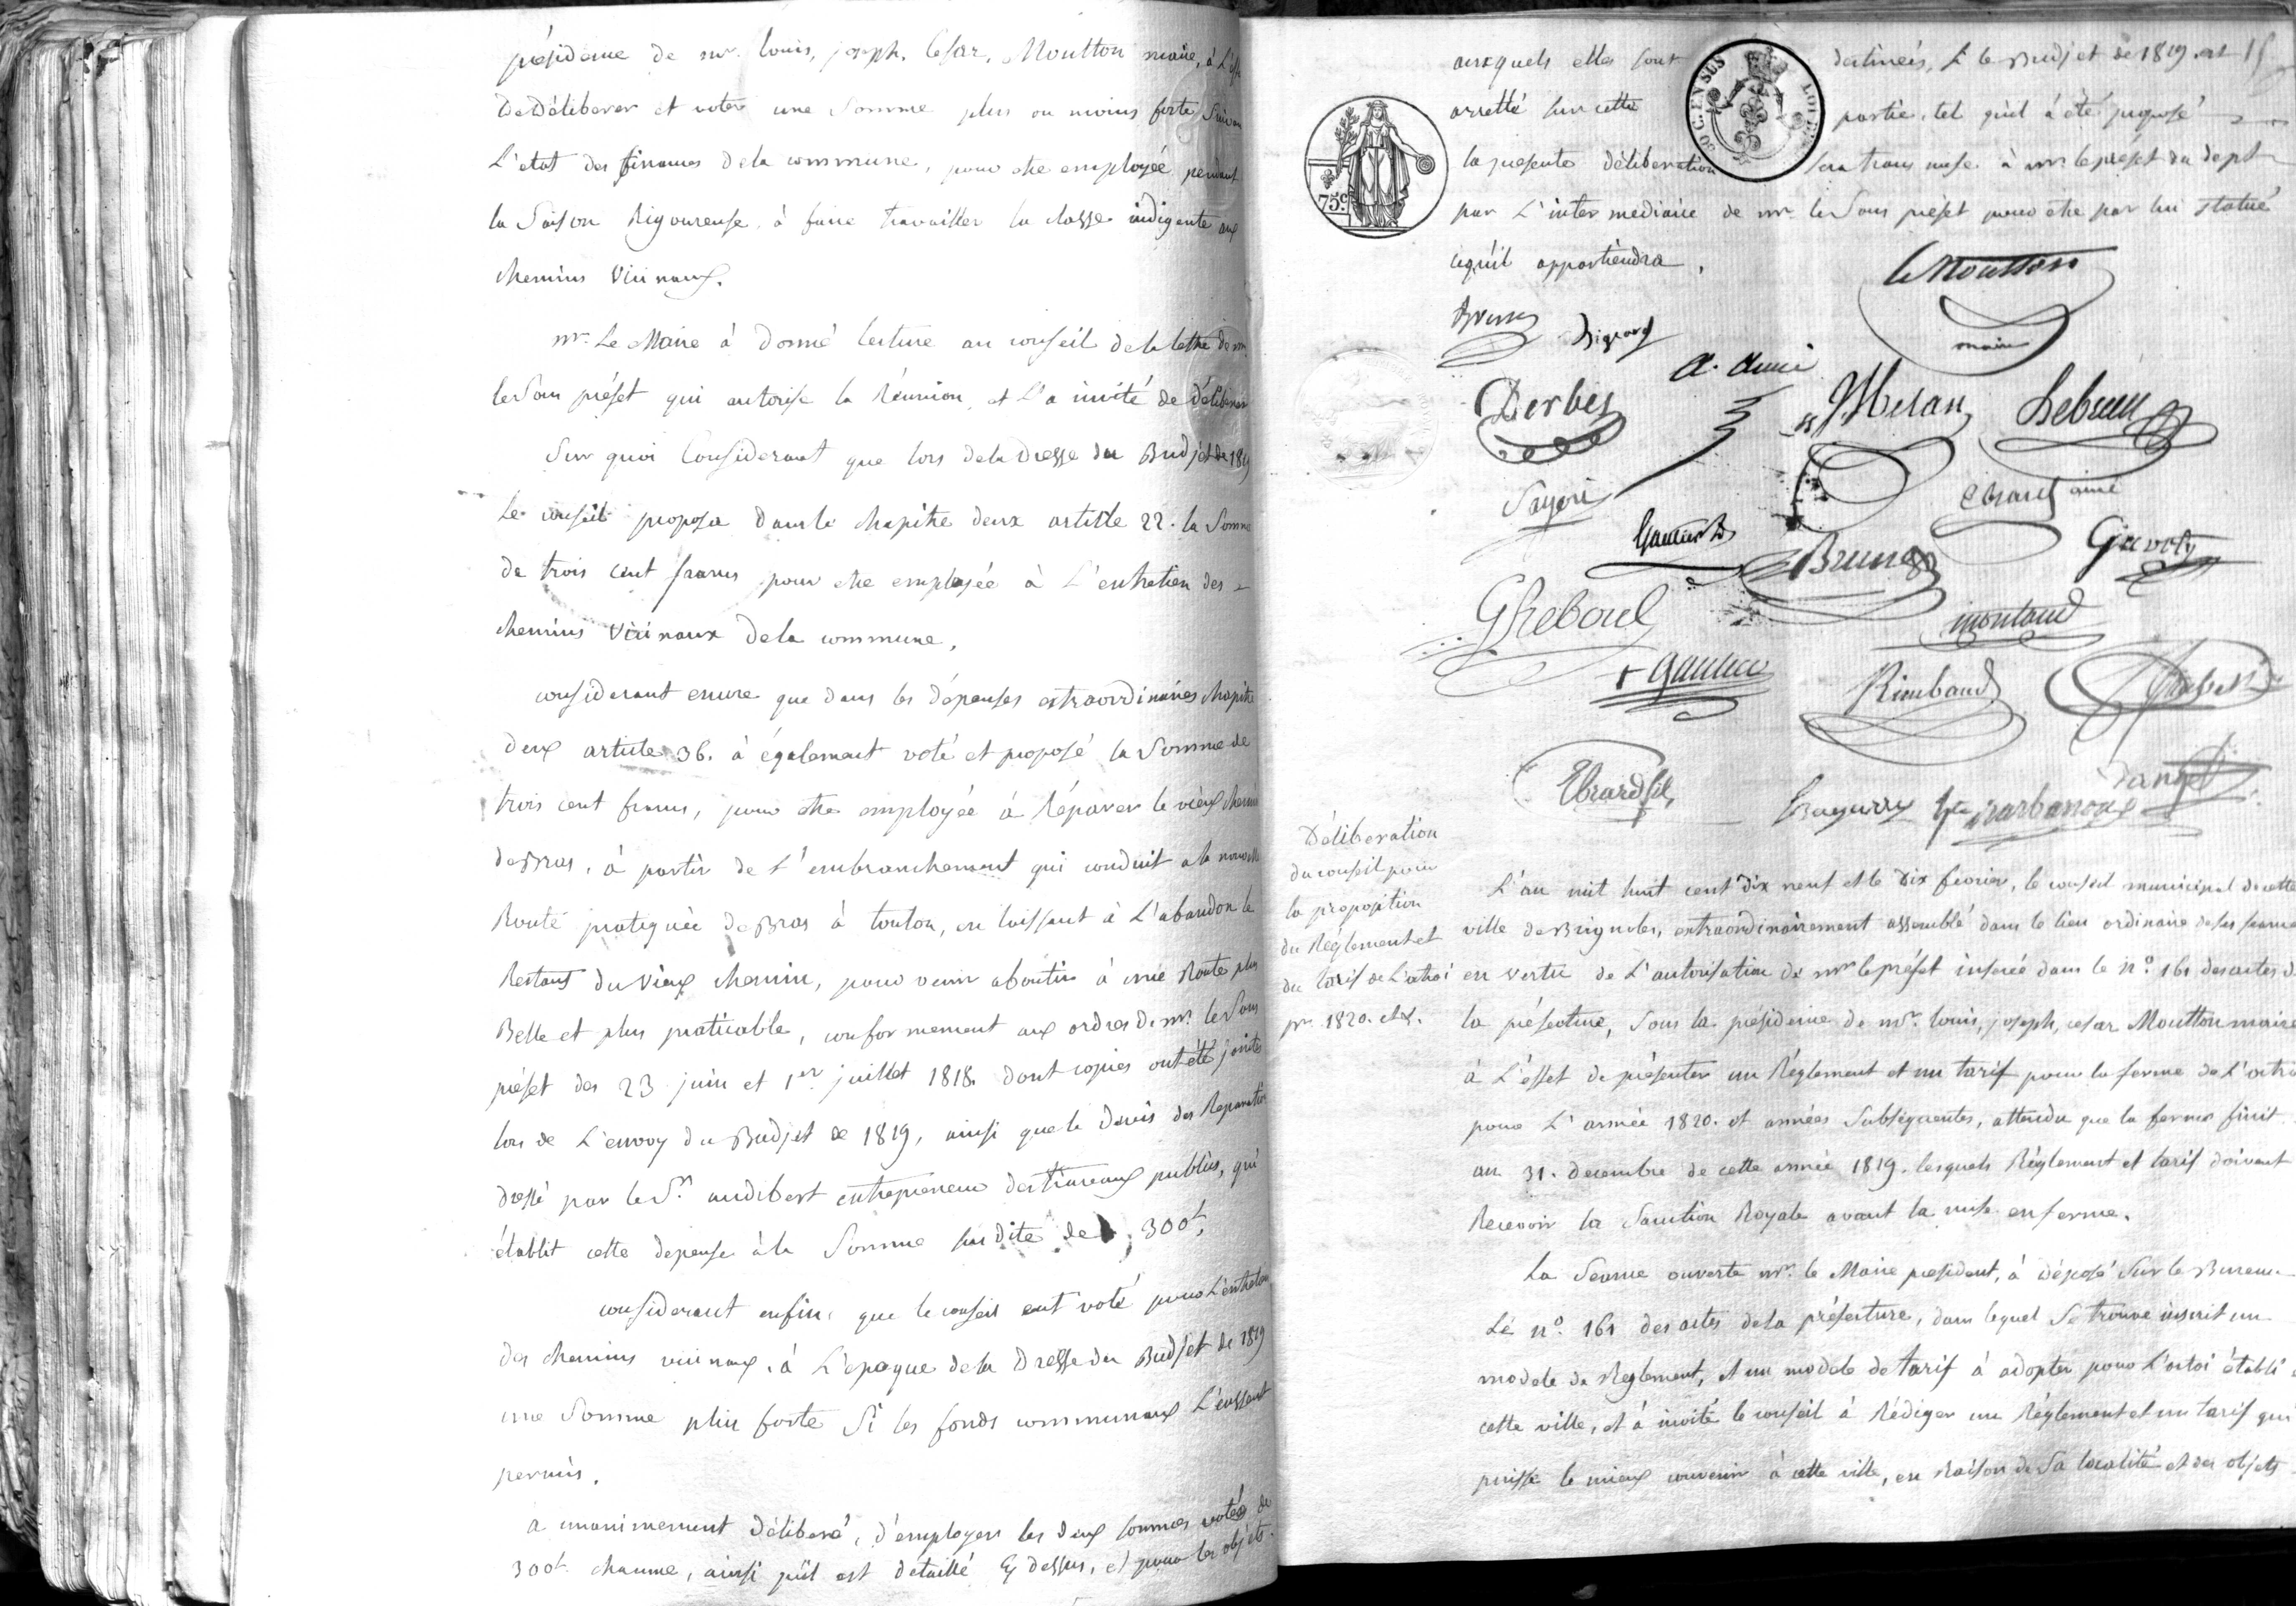 présidence de mr. louis, joseph, Cesar, Moutton maire, à L'effet
De Déliberer et voter une Somme plus ou moins forte Suivant
L'etat des finances dela commune, pour etre employée pendant
la Saison Rigoureuse, à faire travailler la classe indigente aux
chemins Vicinaux.
mr. Le Maire à donné lecture au conseil dela lettre de mr.
le Sous préfet qui autorise la Réunion, et L'a invité de déliberer
Sur quoi Considerant que lors dela dresse du Budjet de 1819
Le conseil proposa dans le chapitre deux article 22. la Somme
de trois cent francs pour etre employée à L'entretien des
chemins Vicinaux dela commune,
considerant encore que dans les dépenses extraordinaires chapitre
deux article 36. à également voté et proposé la Somme de
trois cent francs, pour etre employée à Réparer le vieux chemin
de Bras, à partir de L'embranchement qui conduit a la nouvelle
Route pratiquée de Bras à toulon, en laissant à L'abandon le
Restant du Vieux chemin, pour venir aboutir à une Route plus
Belle et plus praticable, conformement aux ordres de mr. le Sous
préfet des 23 juin et 1er. juillet 1818. dont copies ont été jointes
lors de L'envoy du Budjet de 1819, ainsi que le devis des Reparations
dressé par le Sr. audibert entrepreneur des travaux publics, qui
établit cette depense à la Somme sus dite de 300f,
considerant enfin que le conseil eut voté pour L'entretien
des chemins vicinaux, à L'epoque dela Dresse du Budjet de 1819
une Somme plus forte Si les fonds communaux L'eussent
permis,
à unanimement Déliberé, d'employer les deux sommes votées de
300f. chacune, ainsi qu'il est détaillé Cy dessus, et pour les objets
auxquels elles sont destinées, & le Budjet de 1819. est
arretté sur cette partie, tel qu'il à été proposé
la presente déliberation sera transmise à mr. le préfet du dept
par L'intermediaire de mr. le Sous préfet pour etre par lui statué
cequ'il appartiendra,
75c.
Le Moutton
maire
Bigard
Derbes
Lebrun
Gavoty
Brun
GReboul
montaud
Rimbaud
Ebrard fils
Barbaroux
Déliberation
du conseil pour
la proposition
du Réglement et
du tarif de L'octroi
pr. 1820. et &.
L'an mil huit cent dix neuf et le dix fevrier, le conseil municipal de cette
ville de Brignoles, extraordinairement assemblé dans le lieu ordinaire de ses seances
en vertu de L'autorisation de mr. le préfet inserée dans le no. 161 des actes de
la préfecture, Sous la présidence de mr. louis, joseph, cesar Moutton maire
à L'effet de présenter un Réglement et un tarif pour la ferme de L'octroi
pour L'année 1820. et années Subséquentes, attendu que la ferme finit
au 31. decembre de cette année 1819. lesquels Réglement et tarif doivent
Recevoir la Sanction Royale avant la mise en ferme.
La Seance ouverte mr. le Maire president, à déposé Sur le Bureau
Le no. 161 des actes dela préfecture, dans lequel Se trouve inscrit un
modele de Reglement, et un modele de tarif à adopter pour L'octroi établi
cette ville, et à invité le conseil à Rédiger un Réglement et un tarif qui
puisse le mieux convenir à cette ville, en Raison de Sa localité et des objets